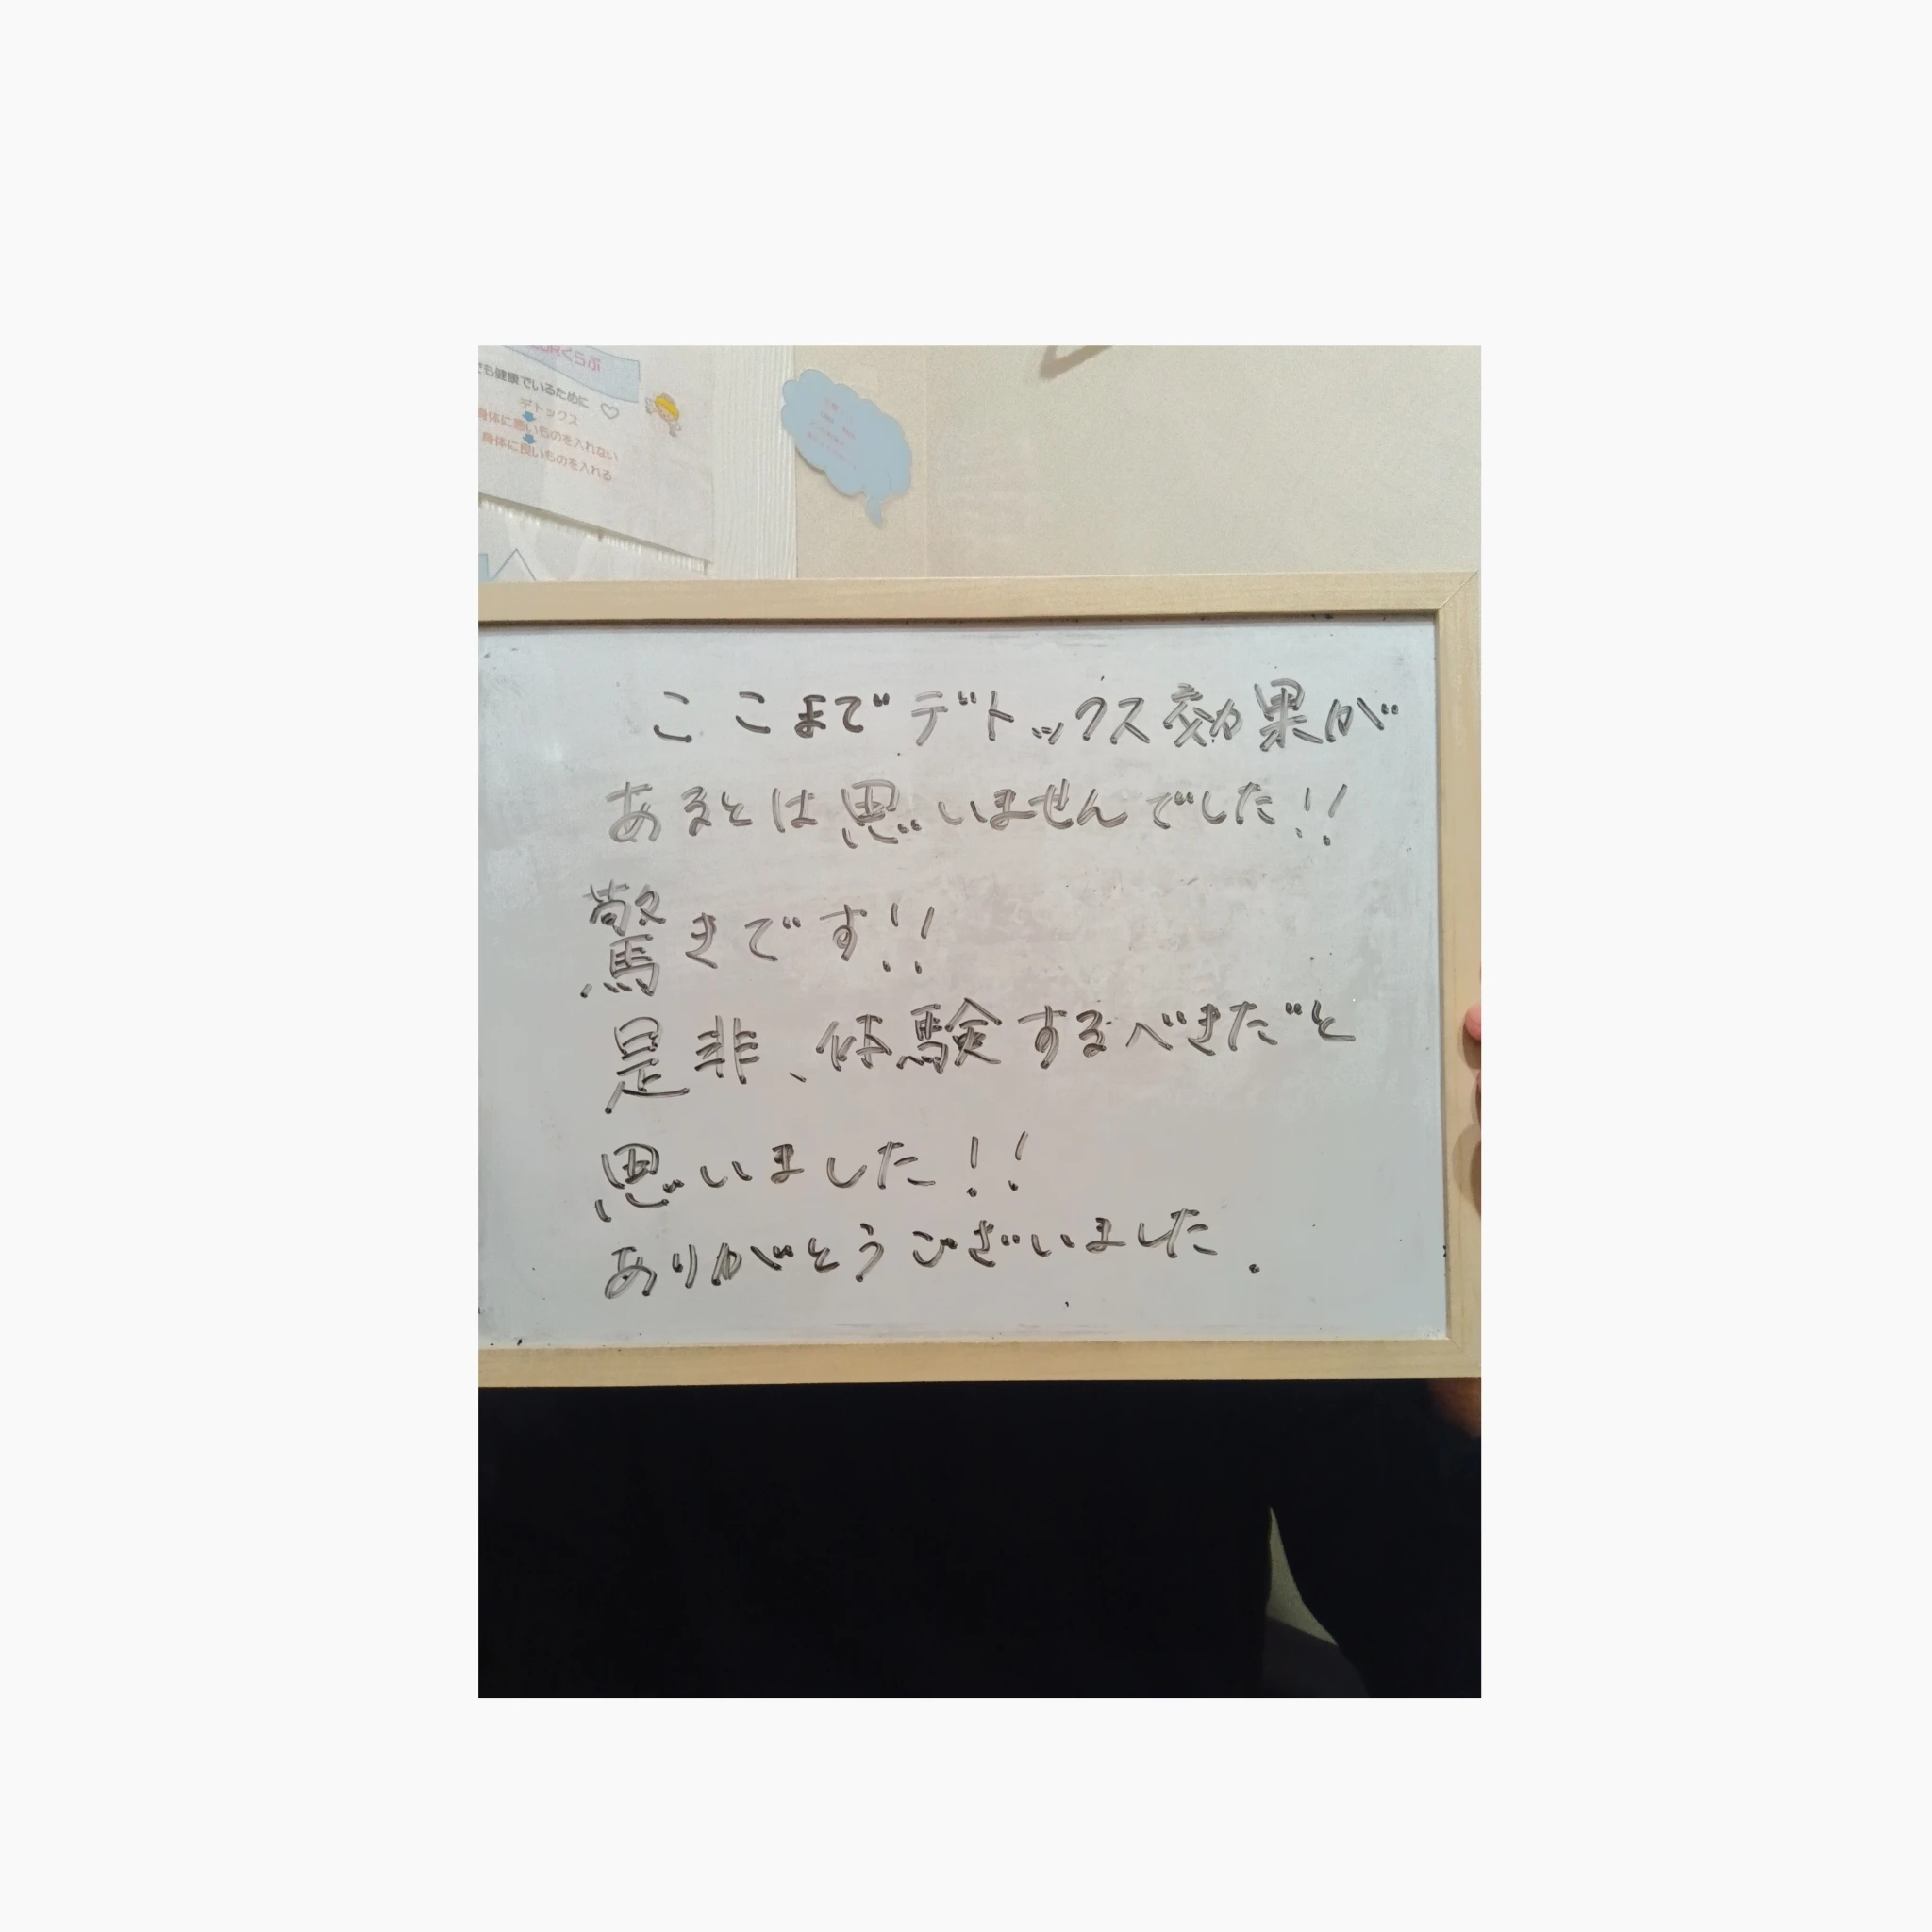 くらぶ
も健康でいるために
デトックス
身体に悪いものを入れない
身体に良いものを入れる
ここまでデトックス効果が
あるとは思いませんでした!!
驚きです!!
是非、体験するべきだと
思いました!!
ありがとうございました.